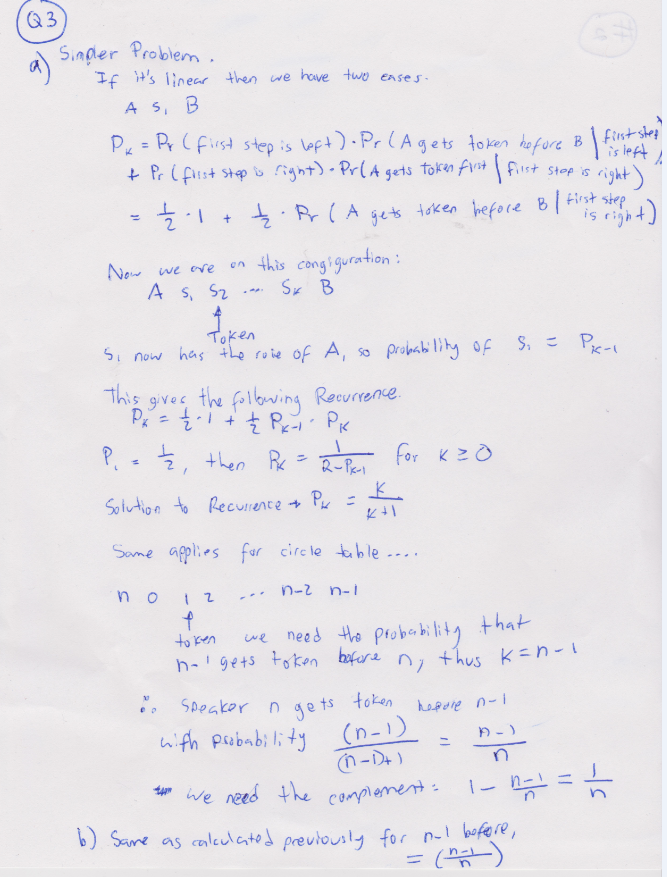 Q3
a) Simpler Problem.
If it's linear then we have two cases.
A S₁ B
Pₖ = Pr (first step is left) · Pr (A gets token before B | first step is left)
+ Pr (first step is right) · Pr (A gets token first | first step is right)
= 1/2 · 1 + 1/2 · Pr ( A gets token before B | first step is right)
Now we are on this congiguration:
A S₁ S₂ ... Sₖ B
↑
Token
S₁ now has the role of A, so probability of S₁ = Pₖ₋₁
This gives the following Recurrence.
Pₖ = 1/2 · 1 + 1/2 Pₖ₋₁ · Pₖ
P₁ = 1/2, then Pₖ = 1/(2-Pₖ₋₁) for k ≥ 0
Solution to Recurrence → Pₖ = k/(k+1)
Same applies for circle table ....
n 0 1 2 ... n-2 n-1
↑
token we need the probability that
n-1 gets token before n, thus k = n-1
∴ Speaker n gets token before n-1
with probability (n-1)/((n-1)+1) = (n-1)/n
we need the complement: 1 - (n-1)/n = 1/n
b) Same as calculated previously for n-1 before,
= ((n-1)/n)